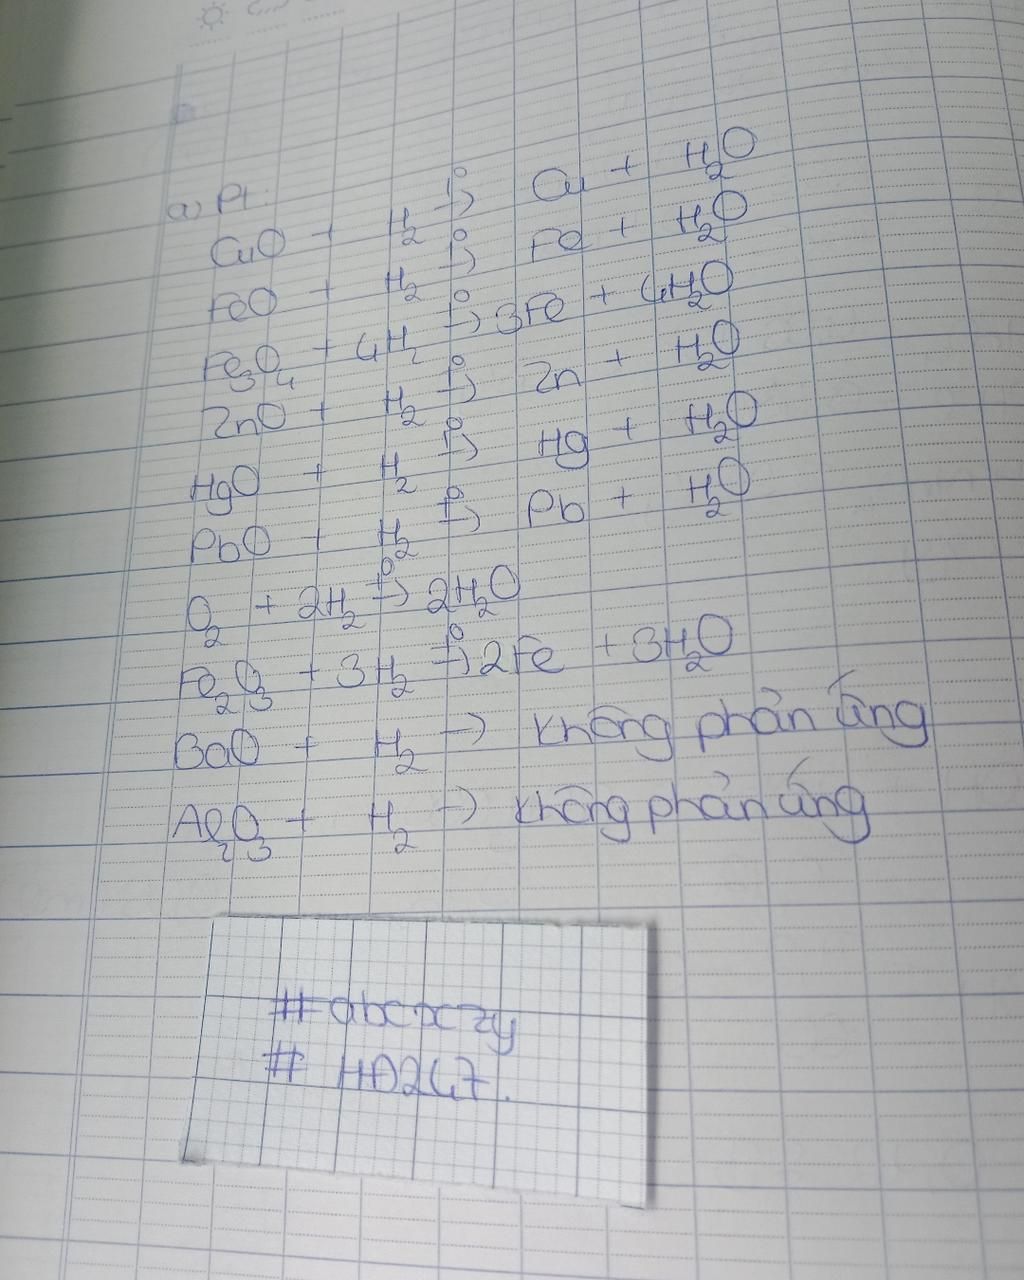 a) Pt:
CuO + H₂ t°→ Cu + H₂O
FeO + H₂ t°→ Fe + H₂O
Fe₃O₄ + 4H₂ t°→ 3Fe + 4H₂O
ZnO + H₂ t°→ Zn + H₂O
HgO + H₂ t°→ Hg + H₂O
PbO + H₂ t°→ Pb + H₂O
O₂ + 2H₂ t°→ 2H₂O
Fe₂O₃ + 3H₂ t°→ 2Fe + 3H₂O
BaO + H₂ → không phản ứng
Al₂O₃ + H₂ → không phản ứng
# abcxzy
# HA247.